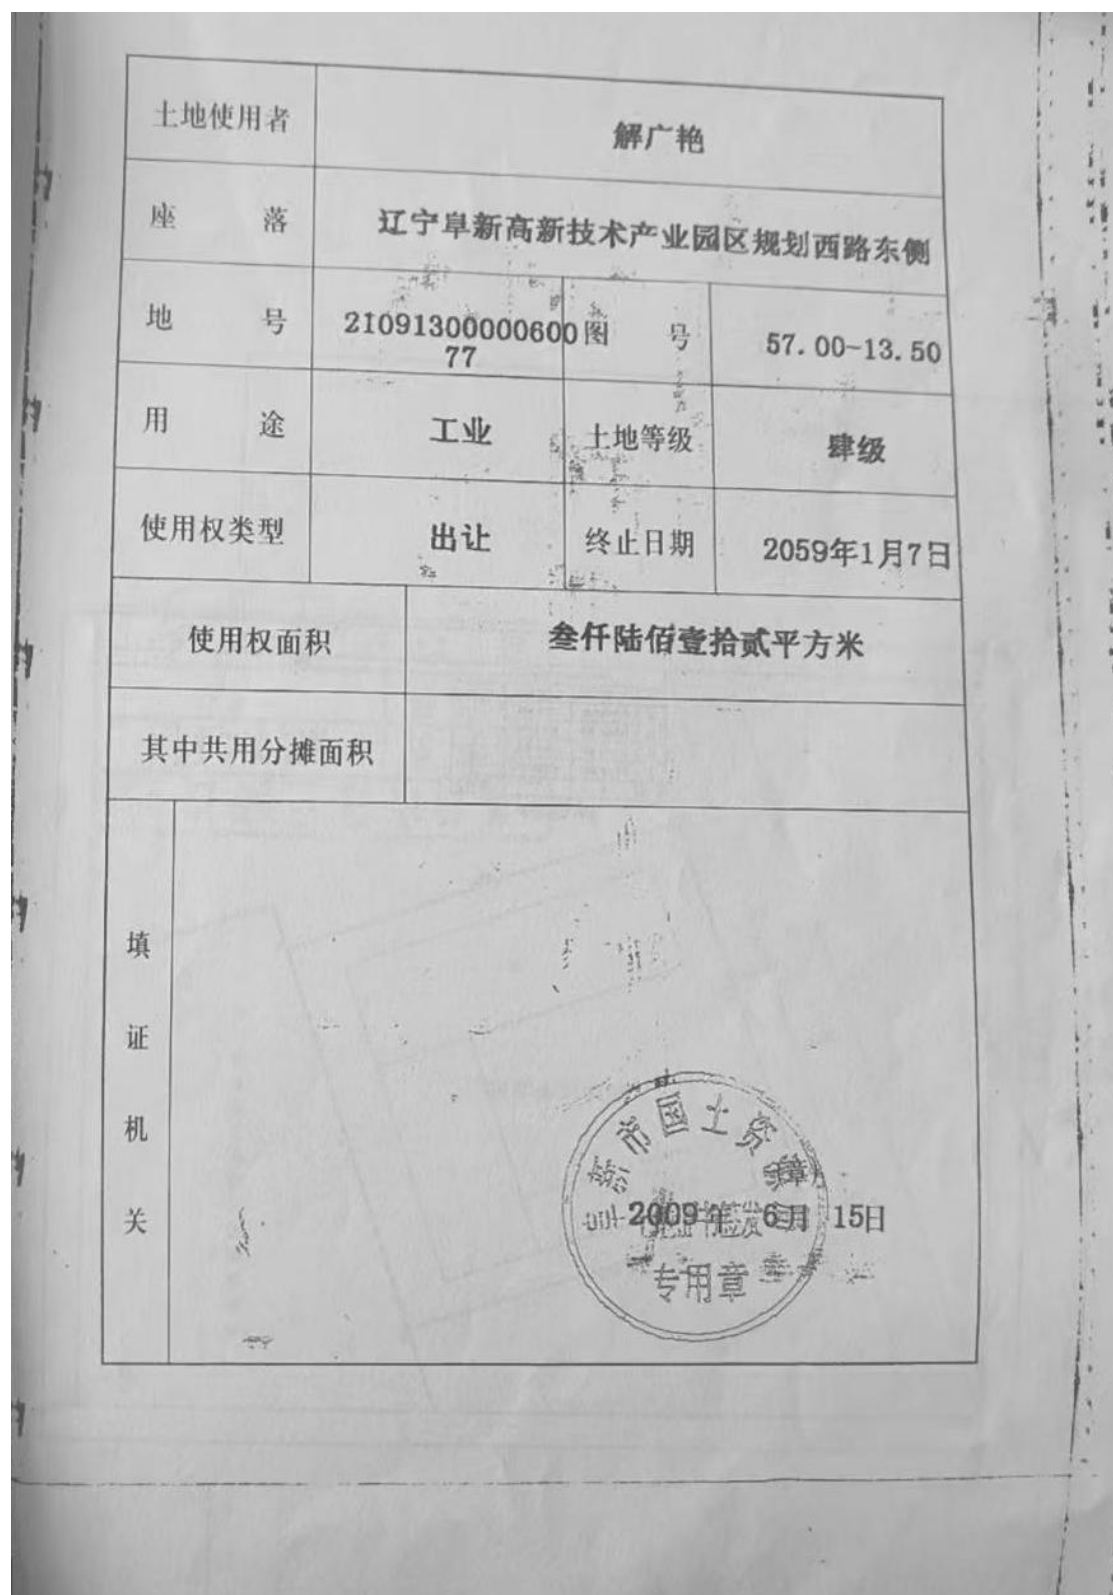 土地使用者 解广艳
座落 辽宁阜新高新技术产业园区规划西路东侧
地号 21091300000600 图号 57.00-13.50
77
用途 工业 土地等级 肆级
使用权类型 出让 终止日期 2059年1月7日
使用权面积 叁仟陆佰壹拾贰平方米
其中共用分摊面积
填证机关
阜新市国土资
(章)
2009年 6月 15日
专用章